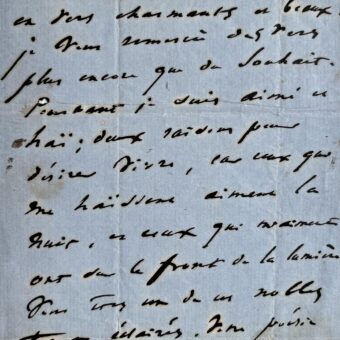 en vers charmants et beaux.
je vous remercie des vers
plus encore que du souhait.
Pourtant je suis aimé et
haï; deux raisons pour
désirer vivre, car ceux qui
me haïssent aiment la
nuit, et ceux qui m'aiment
ont sur le front de la lumière
Vous êtes un de ces nobles
éclairés. Votre poésie